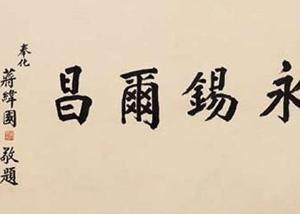 永錫爾昌
奉化
蔣緯國
敬題